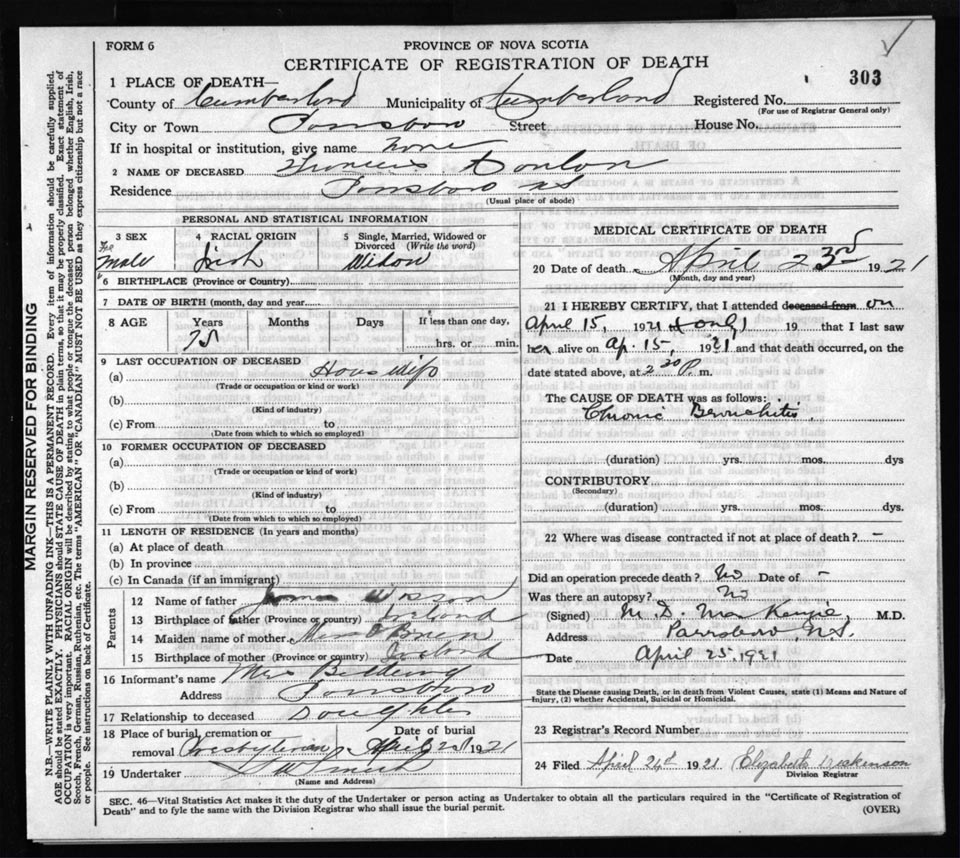 FORM 6
PROVINCE OF NOVA SCOTIA
CERTIFICATE OF REGISTRATION OF DEATH
303
1 PLACE OF DEATH—
County of Cumberland Municipality of Cumberland Registered No.
(For use of Registrar General only)
City or Town Parrsboro Street House No.
If in hospital or institution, give name None
2 NAME OF DECEASED Conlon
Residence Parrsboro NS
(Usual place of abode)
PERSONAL AND STATISTICAL INFORMATION
3 SEX
Fe
male
4 RACIAL ORIGIN
Irish
5 Single, Married, Widowed or
Divorced (Write the word)
Widow
6 BIRTHPLACE (Province or Country)
7 DATE OF BIRTH (month, day and year)
8 AGE Years Months Days If less than one day,
75 hrs. or min.
9 LAST OCCUPATION OF DECEASED
(a) Housewife
(Trade or occupation or kind or work)
(b)
(Kind of industry)
(c) From to
(Date from which to which so employed)
10 FORMER OCCUPATION OF DECEASED
(a)
(Trade or occupation or kind of work)
(b)
(Kind of industry)
(c) From to
(Date from which to which so employed)
11 LENGTH OF RESIDENCE (In years and months)
(a) At place of death
(b) In province
(c) In Canada (if an immigrant)
Parents
12 Name of father
13 Birthplace of father (Province or country) Ireland
14 Maiden name of mother O'Brien
15 Birthplace of mother (Province or country) Ireland
16 Informant's name Mrs
Address Parrsboro
17 Relationship to deceased Daughter
18 Place of burial, cremation or Date of burial
removal Presbyterian April 1921
19 Undertaker
(Name and Address)
MEDICAL CERTIFICATE OF DEATH
20 Date of death April 23rd 1921
(Month, day and year)
21 I HEREBY CERTIFY, that I attended deceased from on
April 15, 1921 & only 19 that I last saw
her alive on Ap. 15, 1921 and that death occurred, on the
date stated above, at 2 30 P. m.
The CAUSE OF DEATH was as follows:
Chronic Bronchitis
(duration) yrs. mos. dys
CONTRIBUTORY
(Secondary)
(duration) yrs. mos. dys.
22 Where was disease contracted if not at place of death? -
Did an operation precede death? No Date of -
Was there an autopsy? No
(Signed) M. D. MacKenzie M.D.
Address Parrsboro, N.S.
Date April 25, 1921
State the Disease causing Death, or in death from Violent Causes, state (1) Means and Nature of
Injury, (2) whether Accidental, Suicidal or Homicidal.
23 Registrar's Record Number
24 Filed April 26th 1921 Elizabeth
Division Registrar
SEC. 46—Vital Statistics Act makes it the duty of the Undertaker or person acting as Undertaker to obtain all the particulars required in the "Certificate of Registration of
Death" and to fyle the same with the Division Registrar who shall issue the burial permit.
(OVER)
MARGIN RESERVED FOR BINDING
N.B.—WRITE PLAINLY WITH UNFADING INK—THIS IS A PERMANENT RECORD. Every item of information should be carefully supplied.
AGE should be stated EXACTLY. PHYSICIANS should STATE CAUSE OF DEATH in plain terms, so that it may be properly classified. Exact statement of
OCCUPATION is very important. RACIAL ORIGIN will be described by stating to what people or tongue the deceased person belonged whether English, Irish,
Scotch, French, German, Russian, Ruthenian, etc. The terms "AMERICAN" OR "CANADIAN" MUST NOT BE USED as they express citizenship but not a race
or people. See instructions on back of Certificate.